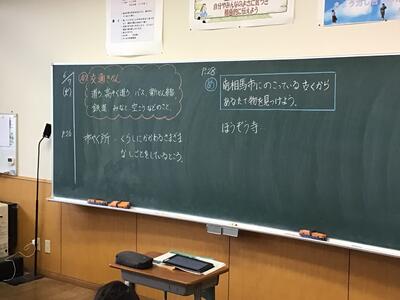 交通きかん
道ろ 高そく道ろ バス 新かん線
鉄道 みなと 空こうなどのこと。
P.26
市やく所 … くらしにかかわるさまざま
なしごとをしているところ。
P.28
め 南相馬市にのこっている 古くから
あるたて物を見つけよう。
ほうぞう寺
自分やみんなのよさに気づき
積極的に伝えよう